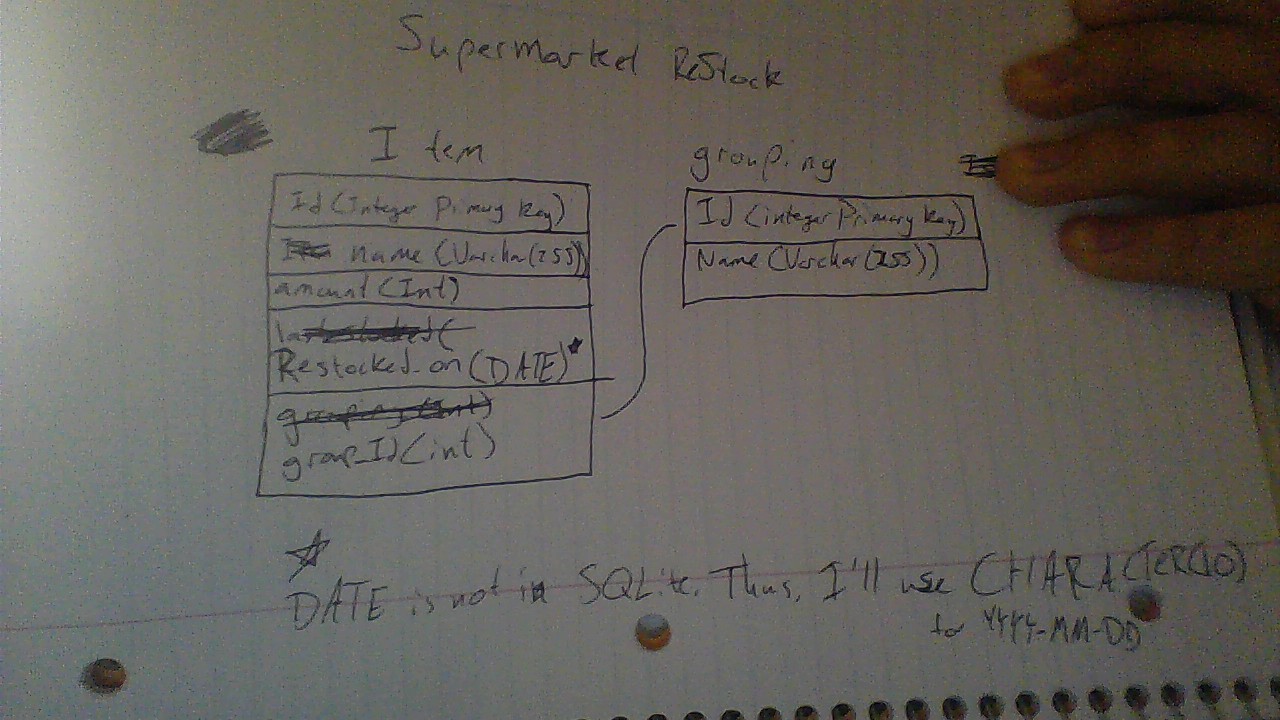 Supermarked ReStock
Item
Id (Integer Primary Key)
name (Varchar(255))
amount (Int)
Restocked_on (DATE)*
grouping (int)
group_Id (int)
grouping
Id (integer Primary Key)
Name (Varchar(255))
* DATE is not in SQLite. Thus, I'll use CHARACTER(10)
for YYYY-MM-DD